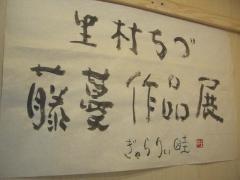 里村ちづ
藤蔓作品展
ぎゃらりい畦